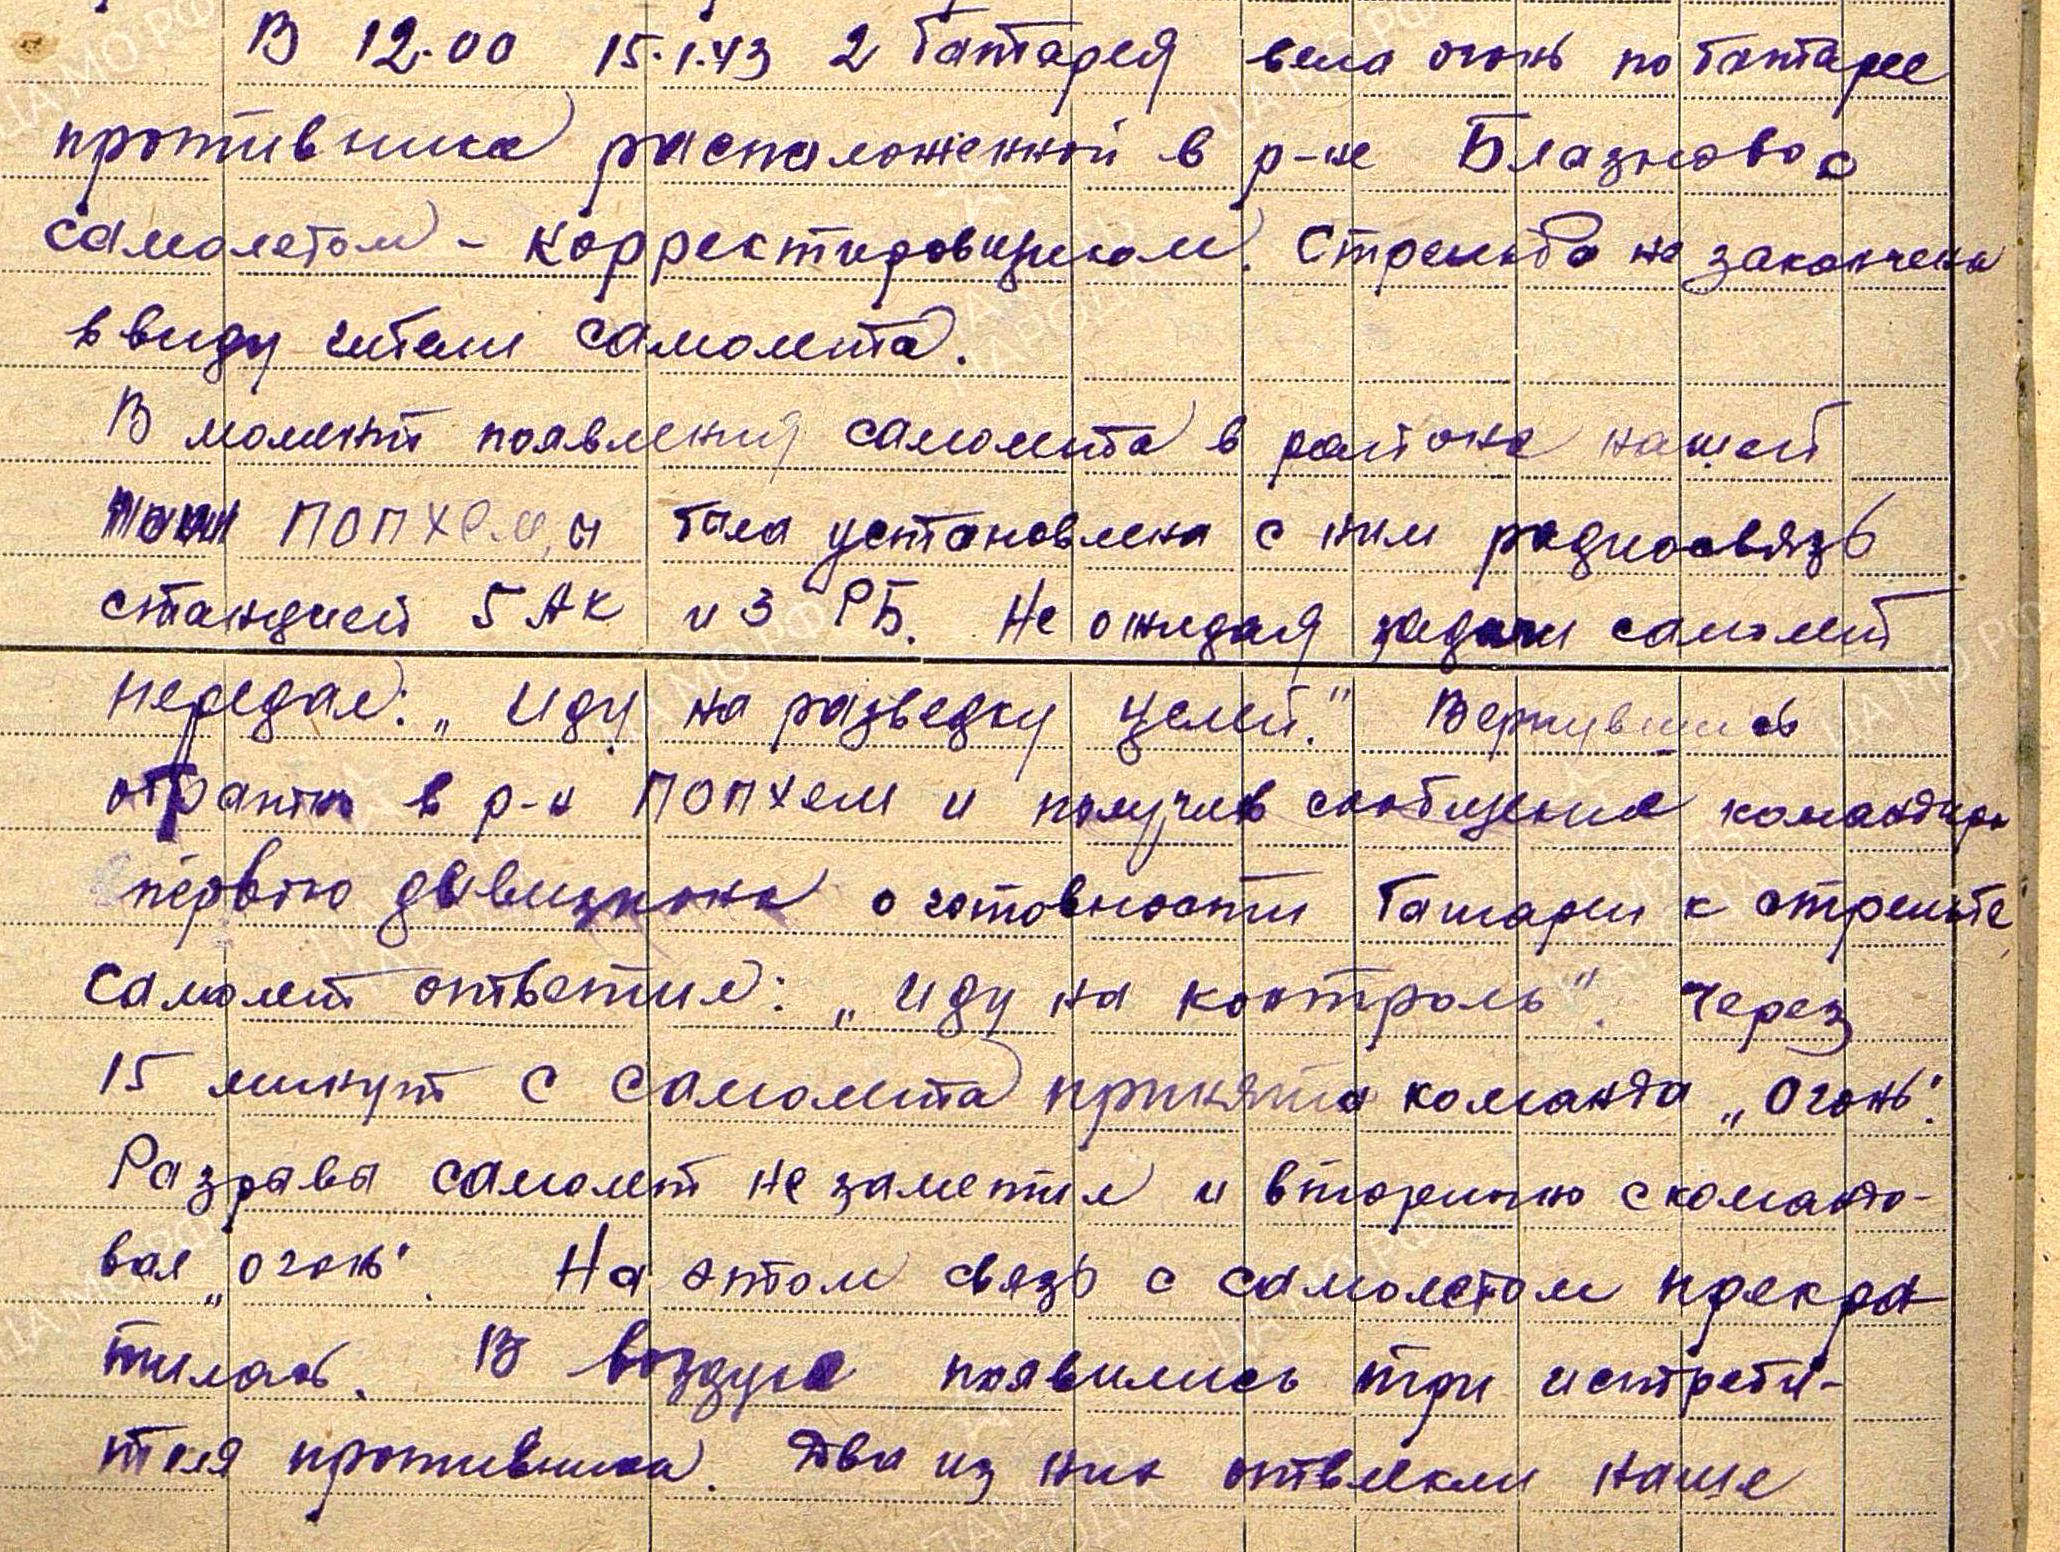 В 12.00 15.1.43 2 батарея вела огонь по батарее
противника расположенной в р-не Блазново с
самолетом - корректировщиком. Стрельба не закончена
в виду гибели самолета.
В момент появления самолета в районе нашей
ПОПХем, а была установлена с ним радиосвязь
станцией 5 АК и 3 РБ. Не ожидая задачи самолет
передал: „Иду на разведку целей." Вернувшись
обратно в р-н ПОПХем и получив сообщение командира
первого дивизиона о готовности батареи к стрельбе,
самолет ответил: „Иду на контроль". Через
15 минут с самолета принята команда „Огонь".
Разрыва самолет не заметил и вторично скомандо-
вал „огонь". На этом связь с самолетом прекра
тилась. В воздухе появились три истреби-
теля противника. Два из них отвлекли наше